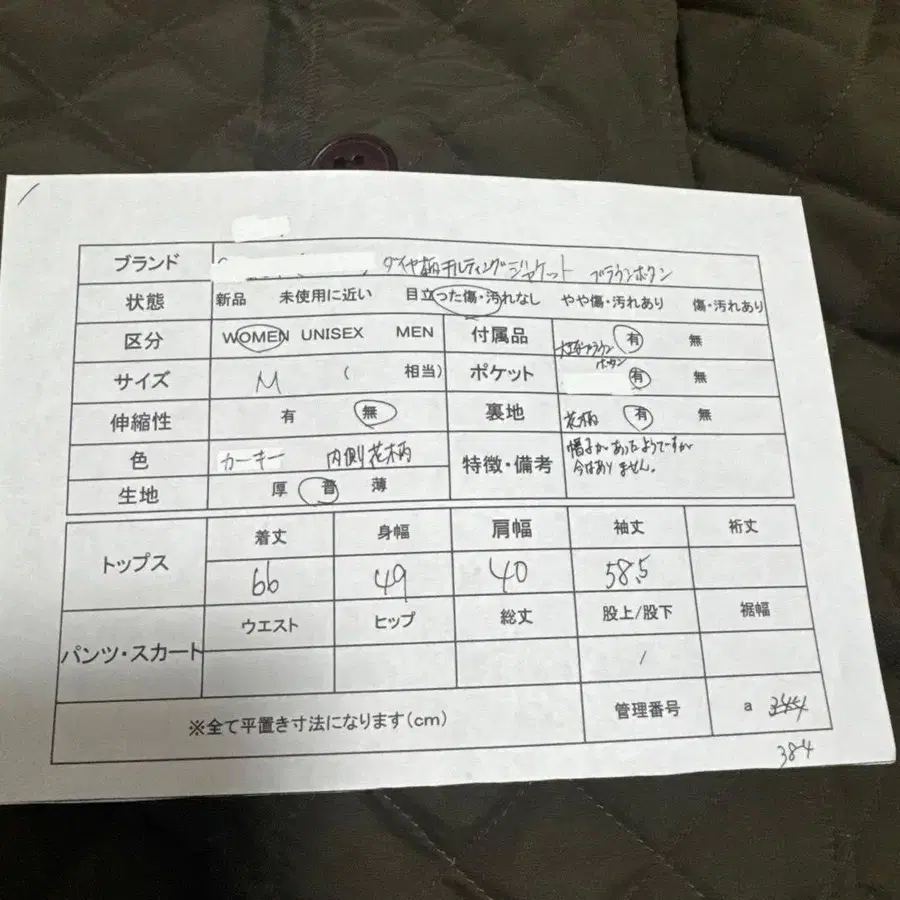 ブランド ダイヤ柄キルティングジャケット ブラウンボタン
状態 新品 未使用に近い 目立った傷・汚れなし やや傷・汚れあり 傷・汚れあり
区分 WOMEN UNISEX MEN 付属品 ブラウンボタン 有 無
サイズ M ( 相当) ポケット 有 無
伸縮性 有 無 裏地 花柄 有 無
色 カーキー 内側花柄 特徴・備考 帽子があったようですが
今はありません。
生地 厚 普 薄
トップス 着丈 身幅 肩幅 袖丈 裄丈
66 49 40 58.5
パンツ・スカート ウエスト ヒップ 総丈 股上/股下 裾幅
/
※全て平置き寸法になります(cm) 管理番号 a 344
384